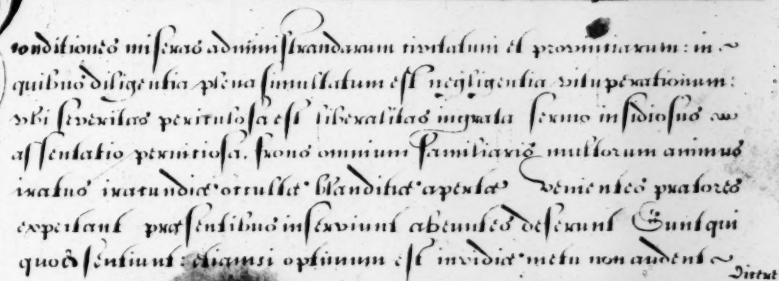 conditiones miseras administrandarum civitatum et provintiarum: in ~
quibus diligentia plena simultatum est negligentia vituperationum:
vbi severitas periculosa est liberalitas ingrata sermo insidiosus
assentatio pernitiosa. frons omnium familiaris multorum animus
iratus iracundiæ occultæ blanditiæ apertæ venientes prætores
expectant præsentibus inserviunt abeuntes deserunt Sunt qui
quod sentiunt: etiamsi optimum est invidiæ metu non audent ~
Dicere